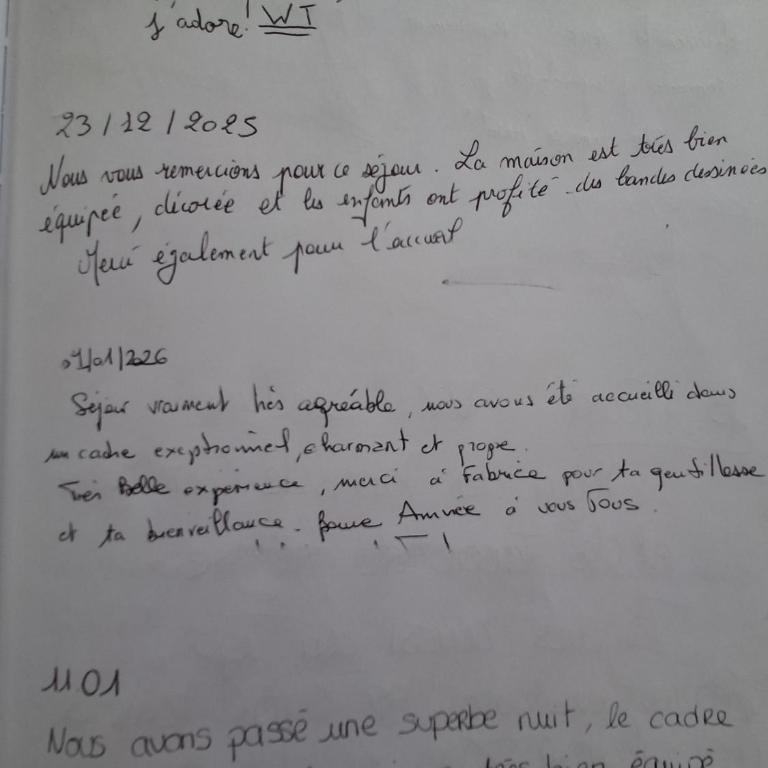 j'adore! WT
23/12/2025
Nous vous remercions pour ce séjour. La maison est très bien
équipée, décorée et les enfants ont profité des bandes dessinées
Merci également pour l'accueil
01/01/2026
Séjour vraiment très agréable, nous avons été accueilli dans
un cadre exceptionnel, charmant et propre.
Très Belle expérience, merci à Fabrice pour ta gentillesse
et ta bienveillance. Bonne Année à vous Tous.
11 01
Nous avons passé une superbe nuit, le cadre
très bien équipé